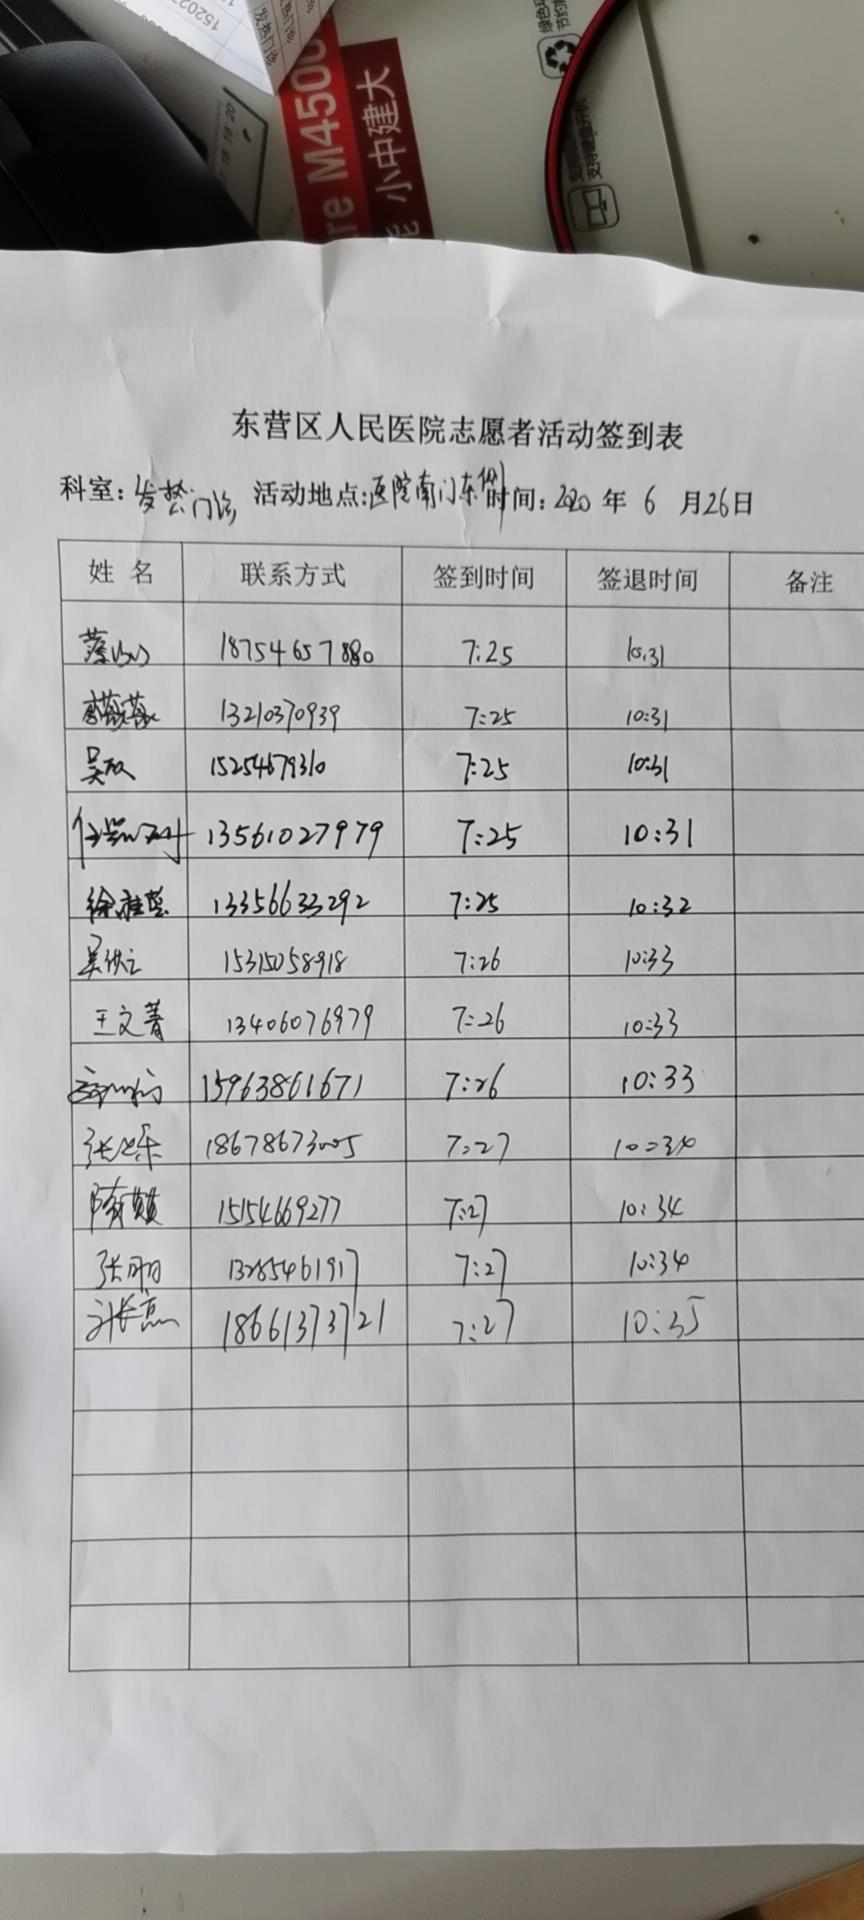 15202
发热门诊
M4500
小中建大
18 19 20
东营区人民医院志愿者活动签到表
科室: 发热门诊 活动地点:医院南门东侧 时间: 2020 年 6 月26日
姓 名 联系方式 签到时间 签退时间 备注
18754657880 7:25 10:31
13210370939 7:25 10:31
15254679310 7:25 10:31
13561027979 7:25 10:31
徐雅慧 13356633292 7:25 10:32
15315058918 7:26 10:33
王文菁 13406076979 7:26 10:33
15963861671 7:26 10:33
18678673005 7:27 10:34
15154669277 7:27 10:34
张明 13285461917 7:27 10:34
18661373721 7:27 10:35